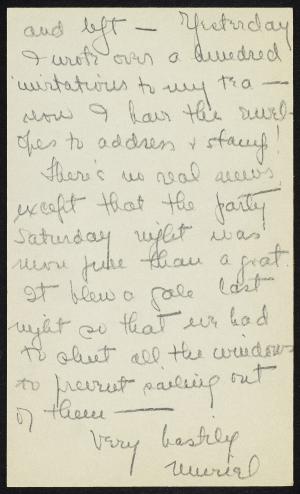 and left — Yesterday
I wrote over a hundred
invitations to my tea —
now I have the envel-
opes to address & stamp!
There's no real news
except that the party
Saturday night was
more fun than a goat.
It blew a gale last
night so that we had
to shut all the windows
to prevent sailing out
of them —
Very hastily
Muriel